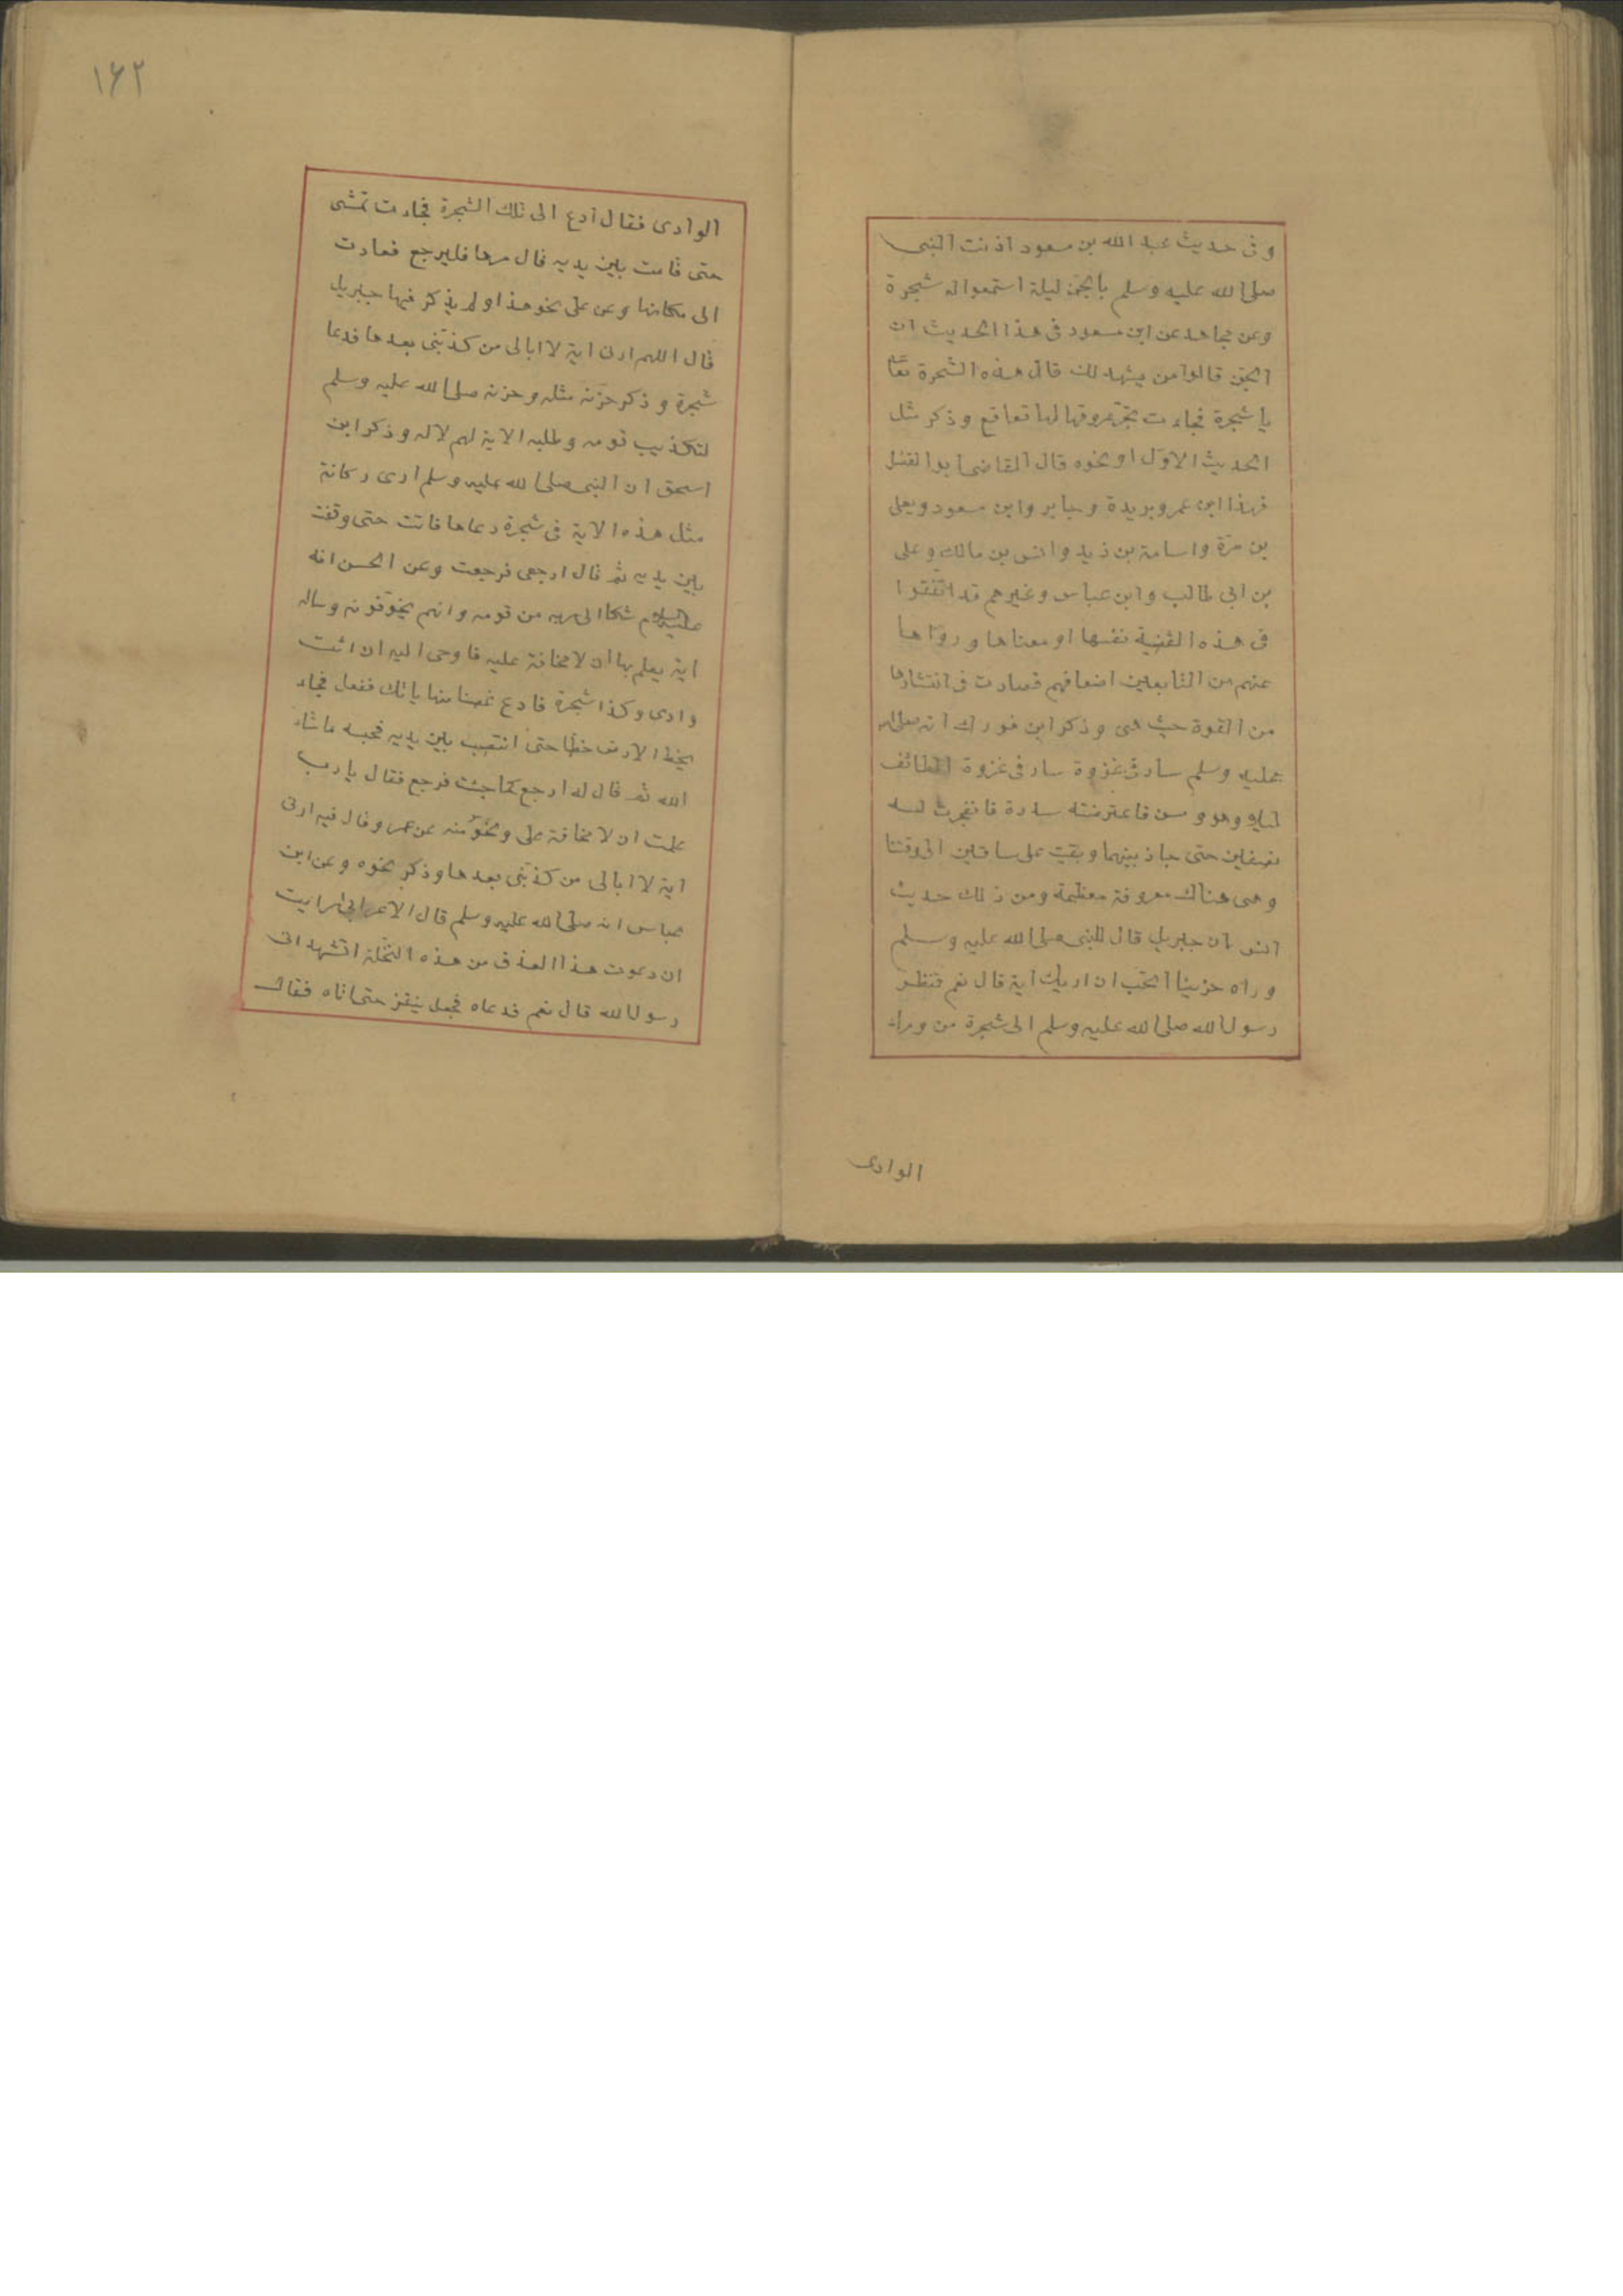 وفى حديث عبد الله بن مسعود اذنت النبى
صلى الله عليه وسلم بالجن ليلة استمعوا له شجرة
وعن مجاهد عن ابن مسعود فى هذا الحديث ان
الجن قالوا من يشهد لك قال هذه الشجرة تعالى
يا شجرة فجاءت تجر عروقها لها قعاقع وذكر مثل
الحديث الاول او نحوه قال القاضى ابو الفضل
فهذا ابن عمر وبريدة وجابر وابن مسعود ويعلى
بن مرة واسامة بن زيد وانس بن مالك وعلى
بن ابى طالب وابن عباس وغيرهم قد اتفقوا
فى هذه القضية نفسها او معناها ورواها
عنهم من التابعين اضعافهم فصارت فى انتشارها
من القوة حيث هى وذكر ابن فورك انه صلى الله
عليه وسلم سار فى غزوة سار فى غزوة الطائف
ليلا وهو وسن فاعترضته سدرة فانفجرت له
نصفين حتى جاز بينهما وبقيت على ساقين الى وقتنا
وهى هناك معروفة معظمة ومن ذلك حديث
انس ان جبريل قال للنبى صلى الله عليه وسلم
وراه حزينا اتحب ان اريك اية قال نعم فنظر
رسول الله صلى الله عليه وسلم الى شجرة من وراء
الوادى
١٦٢
الوادى فقال ادع الى تلك الشجرة فجاءت تمشى
حتى قامت بين يديه قال مرها فليرجع فعادت
الى مكانها وعن على نحو هذا ولم يذكر فيها جبريل
قال اللهم ارنى اية لا ابالى من كذبنى بعدها فدعا
شجرة وذكر حزنه مثله وحزنه صلى الله عليه وسلم
لتكذيب قومه وطلبه الاية لهم لا له وذكر ابن
اسحق ان النبى صلى الله عليه وسلم ارى ركانة
مثل هذه الاية فى شجرة دعاها فاتت حتى وقفت
بين يديه ثم قال ارجعى فرجعت وعن الحسن انه
عليه السلام شكا الى ربه من قومه وانهم يخوفونه وساله
اية يعلم بها ان لا مخافة عليه فاوحى اليه ان ائت
وادى وكذا شجرة فادع غصنا منها ياتك ففعل فجاء
يخط الارض خطا حتى انتصب بين يديه فحبسه ماشاء
الله ثم قال له ارجع كما جئت فرجع فقال يا رب
علمت ان لا مخافة على ونحو منه عن عمر وقال فيه ارنى
اية لا ابالى من كذبنى بعدها وذكر نحوه وعن ابن
عباس انه صلى الله عليه وسلم قال لاعرابى ارايت
ان دعوت هذا العذق من هذه النخلة اتشهد انى
رسول الله قال نعم فدعاه فجعل ينقز حتى اتاه فقال